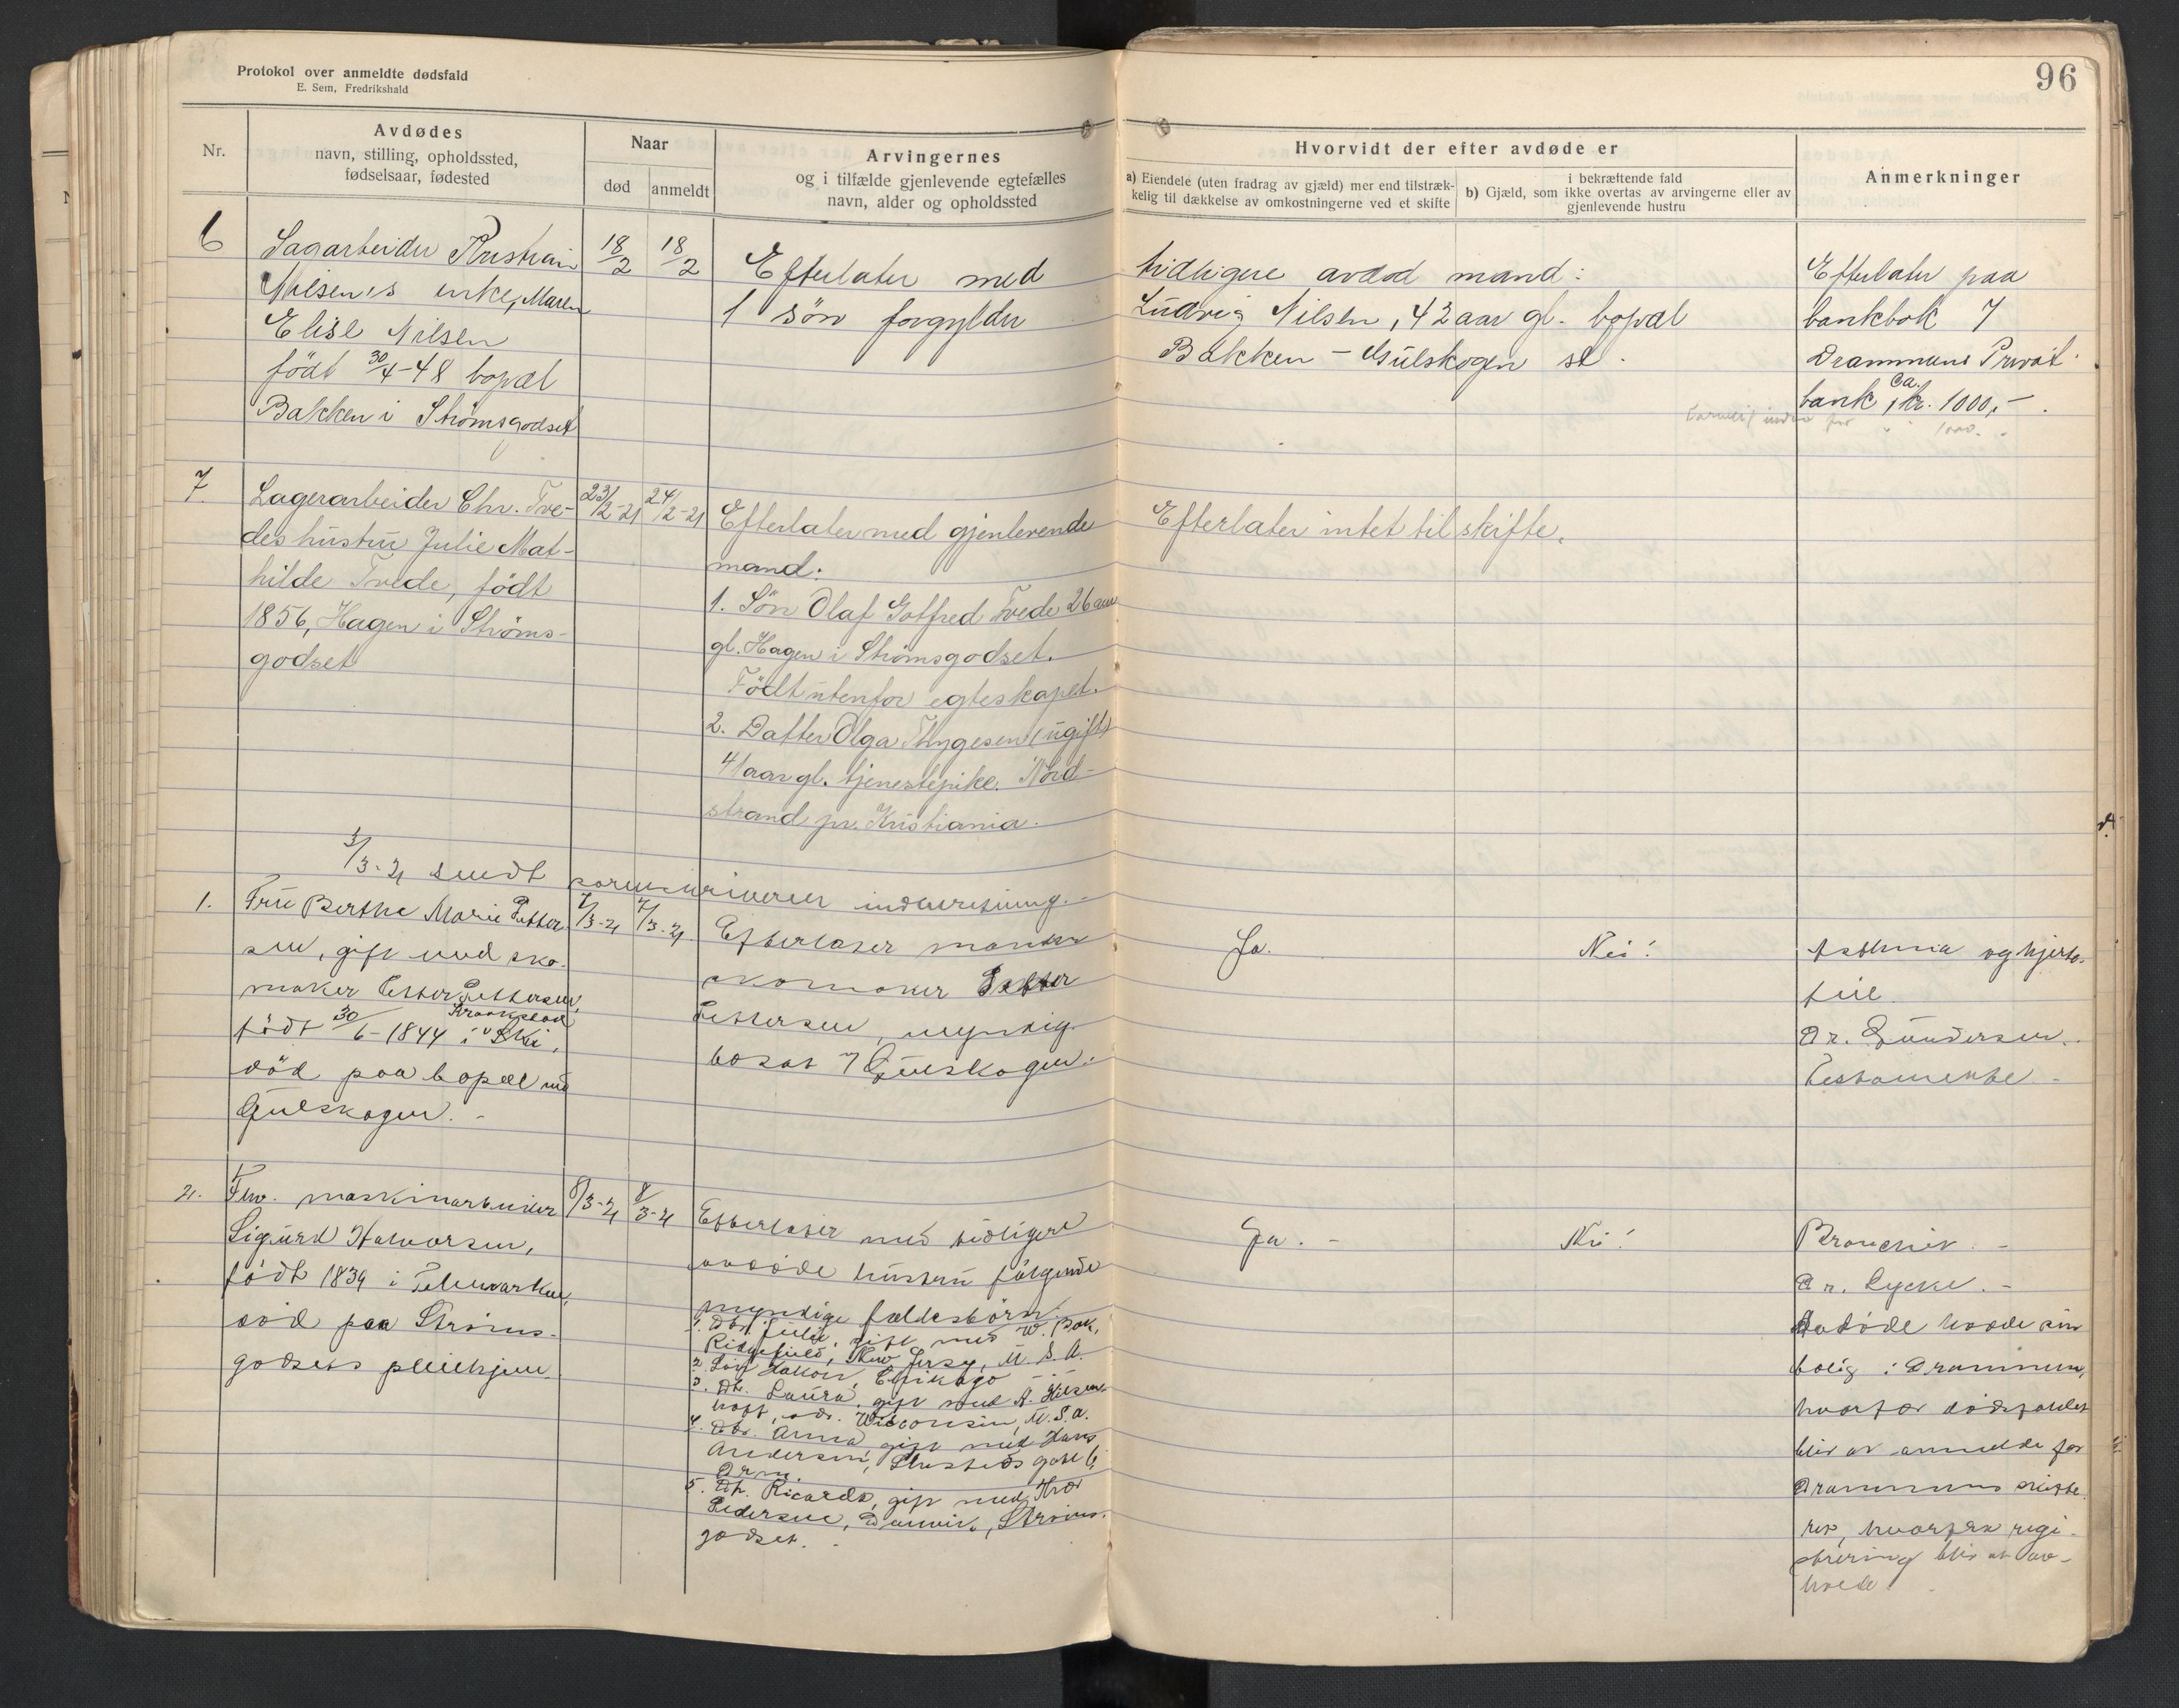 Protokol over anmeldte dødsfald
E. Sem, Fredrikshald
96
Nr.
Avdødes
navn, stilling, opholdssted,
fødselsaar, fødested
Naar
død
anmeldt
Arvingernes
og i tilfælde gjenlevende egtefælles
navn, alder og opholdssted
Hvorvidt der efter avdøde er
a) Eiendele (uten fradrag av gjæld) mer end tilstræk-
kelig til dækkelse av omkostningerne ved et skifte
i bekræftende fald
b) Gjæld, som ikke overtas av arvingerne eller av
gjenlevende hustru
Anmerkninger
6
Sagarbeider Kristian
Nilsen's enke, Maren
Elise Nilsen
født 30/4-48 bopæl
Bakken i Strømsgodset
18/2
18/2
Efterlater med
1 søn forgylder
tidligere avdød mand:
Ludvig Nilsen, 42 aar gl. bopæl
Bakken - Gulskogen st.
Efterlater paa
bankbok i
Drammens Privat
bank, ca. kr. 1000,-
7.
Lagerarbeider Chr. Tve-
des hustru Julie Mat-
hilde Tvede, født
1856, Hagen i Strøms-
godset
23/2-21
24/2-21
Efterlater med gjenlevende
mand:
1. Søn Olaf Gotfred Tvede 26 aar
gl. Hagen i Strømsgodset.
Født utenfor egteskapet.
2. Datter Olga Thygesen (ugift)
41 aar gl. tjenestepike. Nord-
strand pr. Kristiania.
Efterlater intet til skifte.
3/3-21 sendt sorenskriveren indberetning.
1.
Fru Berthe Marie Petter
sen, gift med sko-
maker Petter Pettersen,
født 30/6-1844 i Kraakstad Ski,
død paa bopæl ved
Gulskogen.
7/3-21
7/3-21
Efterlater manden
skomaker Petter
Pettersen, myndig
bosat i Gulskogen.
Ja.
Nei!
Asthma og hjerte-
feil.
Dr. Gundersen.
Testamente
2.
Fhv. maskinarbeider
Sigurd Halvorsen,
født 1839 i Telemarken,
død paa Strøms-
godsets pleiehjem.
8/3-21
8/3-21
Efterlater med tidligere
avdøde hustru følgende
myndige fællesbørn:
1. Dtr. Julie, gift med W. Bak,
Ridgefield, New Jersy, U.S.A.
2. Søn Haakon, Chikago
3. Dt. Laura, gift med A.
Wisconsin, U.S.A.
4. Dtr. Anna, gift med Hans
Andersen, gate 6,
Drm.
5. Dt. Ricarda, gift med Thor
Pedersen, Danvik, Strøms-
godset.
Ja.
Nei!
Bronchit.
Dr. Lycke.
Avdøde havde sin
bolig i Drammen,
hvorfor dødsfaldet
blir at anmelde for
Drammens skifte-
ret, hvorfra regi-
strering blir at av-
holde